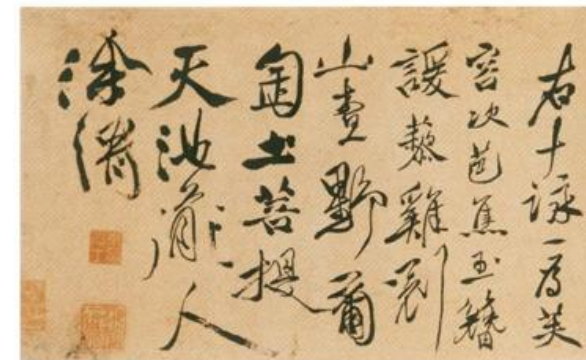 右十詠一為芙
容次芭蕉玉簪
諼藜雞
山查野葡
匋土菩提
天池人
徐渭